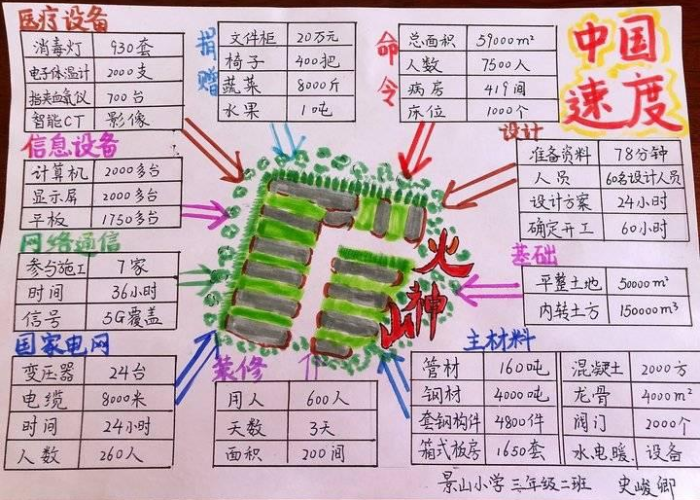 中国
速度
医疗设备
消毒灯 930套
电子体温计 2000支
指夹血氧仪 700台
智能CT 影像
捐赠
文件柜 20万元
椅子 400把
蔬菜 8000斤
水果 10吨
命令
总面积 59000m²
人数 7500人
病房 419间
床位 1000个
设计
准备资料 78分钟
人员 60名设计人员
设计方案 24小时
确定开工 60小时
信息设备
计算机 2000多台
显示屏 2000多台
平板 1750多台
网络通信
参与施工 7家
时间 36小时
信号 5G覆盖
基础
平整土地 50000m²
内转土方 150000m³
火神山
国家电网
变压器 24台
电缆 8000米
时间 24小时
人数 260人
装修
用人 600人
天数 3天
面积 200间
主材料
管材 160吨 混凝土 2000方
钢材 4000吨 龙骨 4000m²
套钢构件 4800件 阀门 2000个
箱式板房 1650套 水、电、暖、设备
景山小学三年级二班 史峻卿